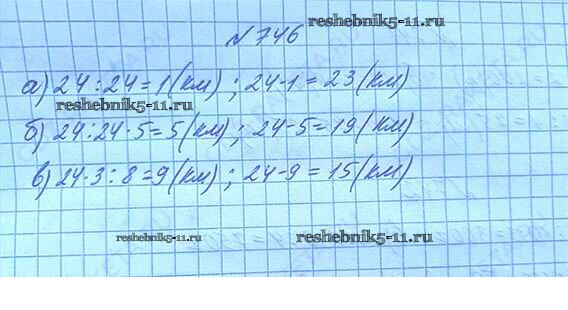 reshebnik5-11.ru
№ 746
а) 24 : 24 = 1 (км) ; 24 - 1 = 23 (км)
reshebnik5-11.ru
б) 24 : 24 · 5 = 5 (км) ; 24 - 5 = 19 (км)
в) 24 · 3 : 8 = 9 (км) ; 24 - 9 = 15 (км)
reshebnik5-11.ru reshebnik5-11.ru